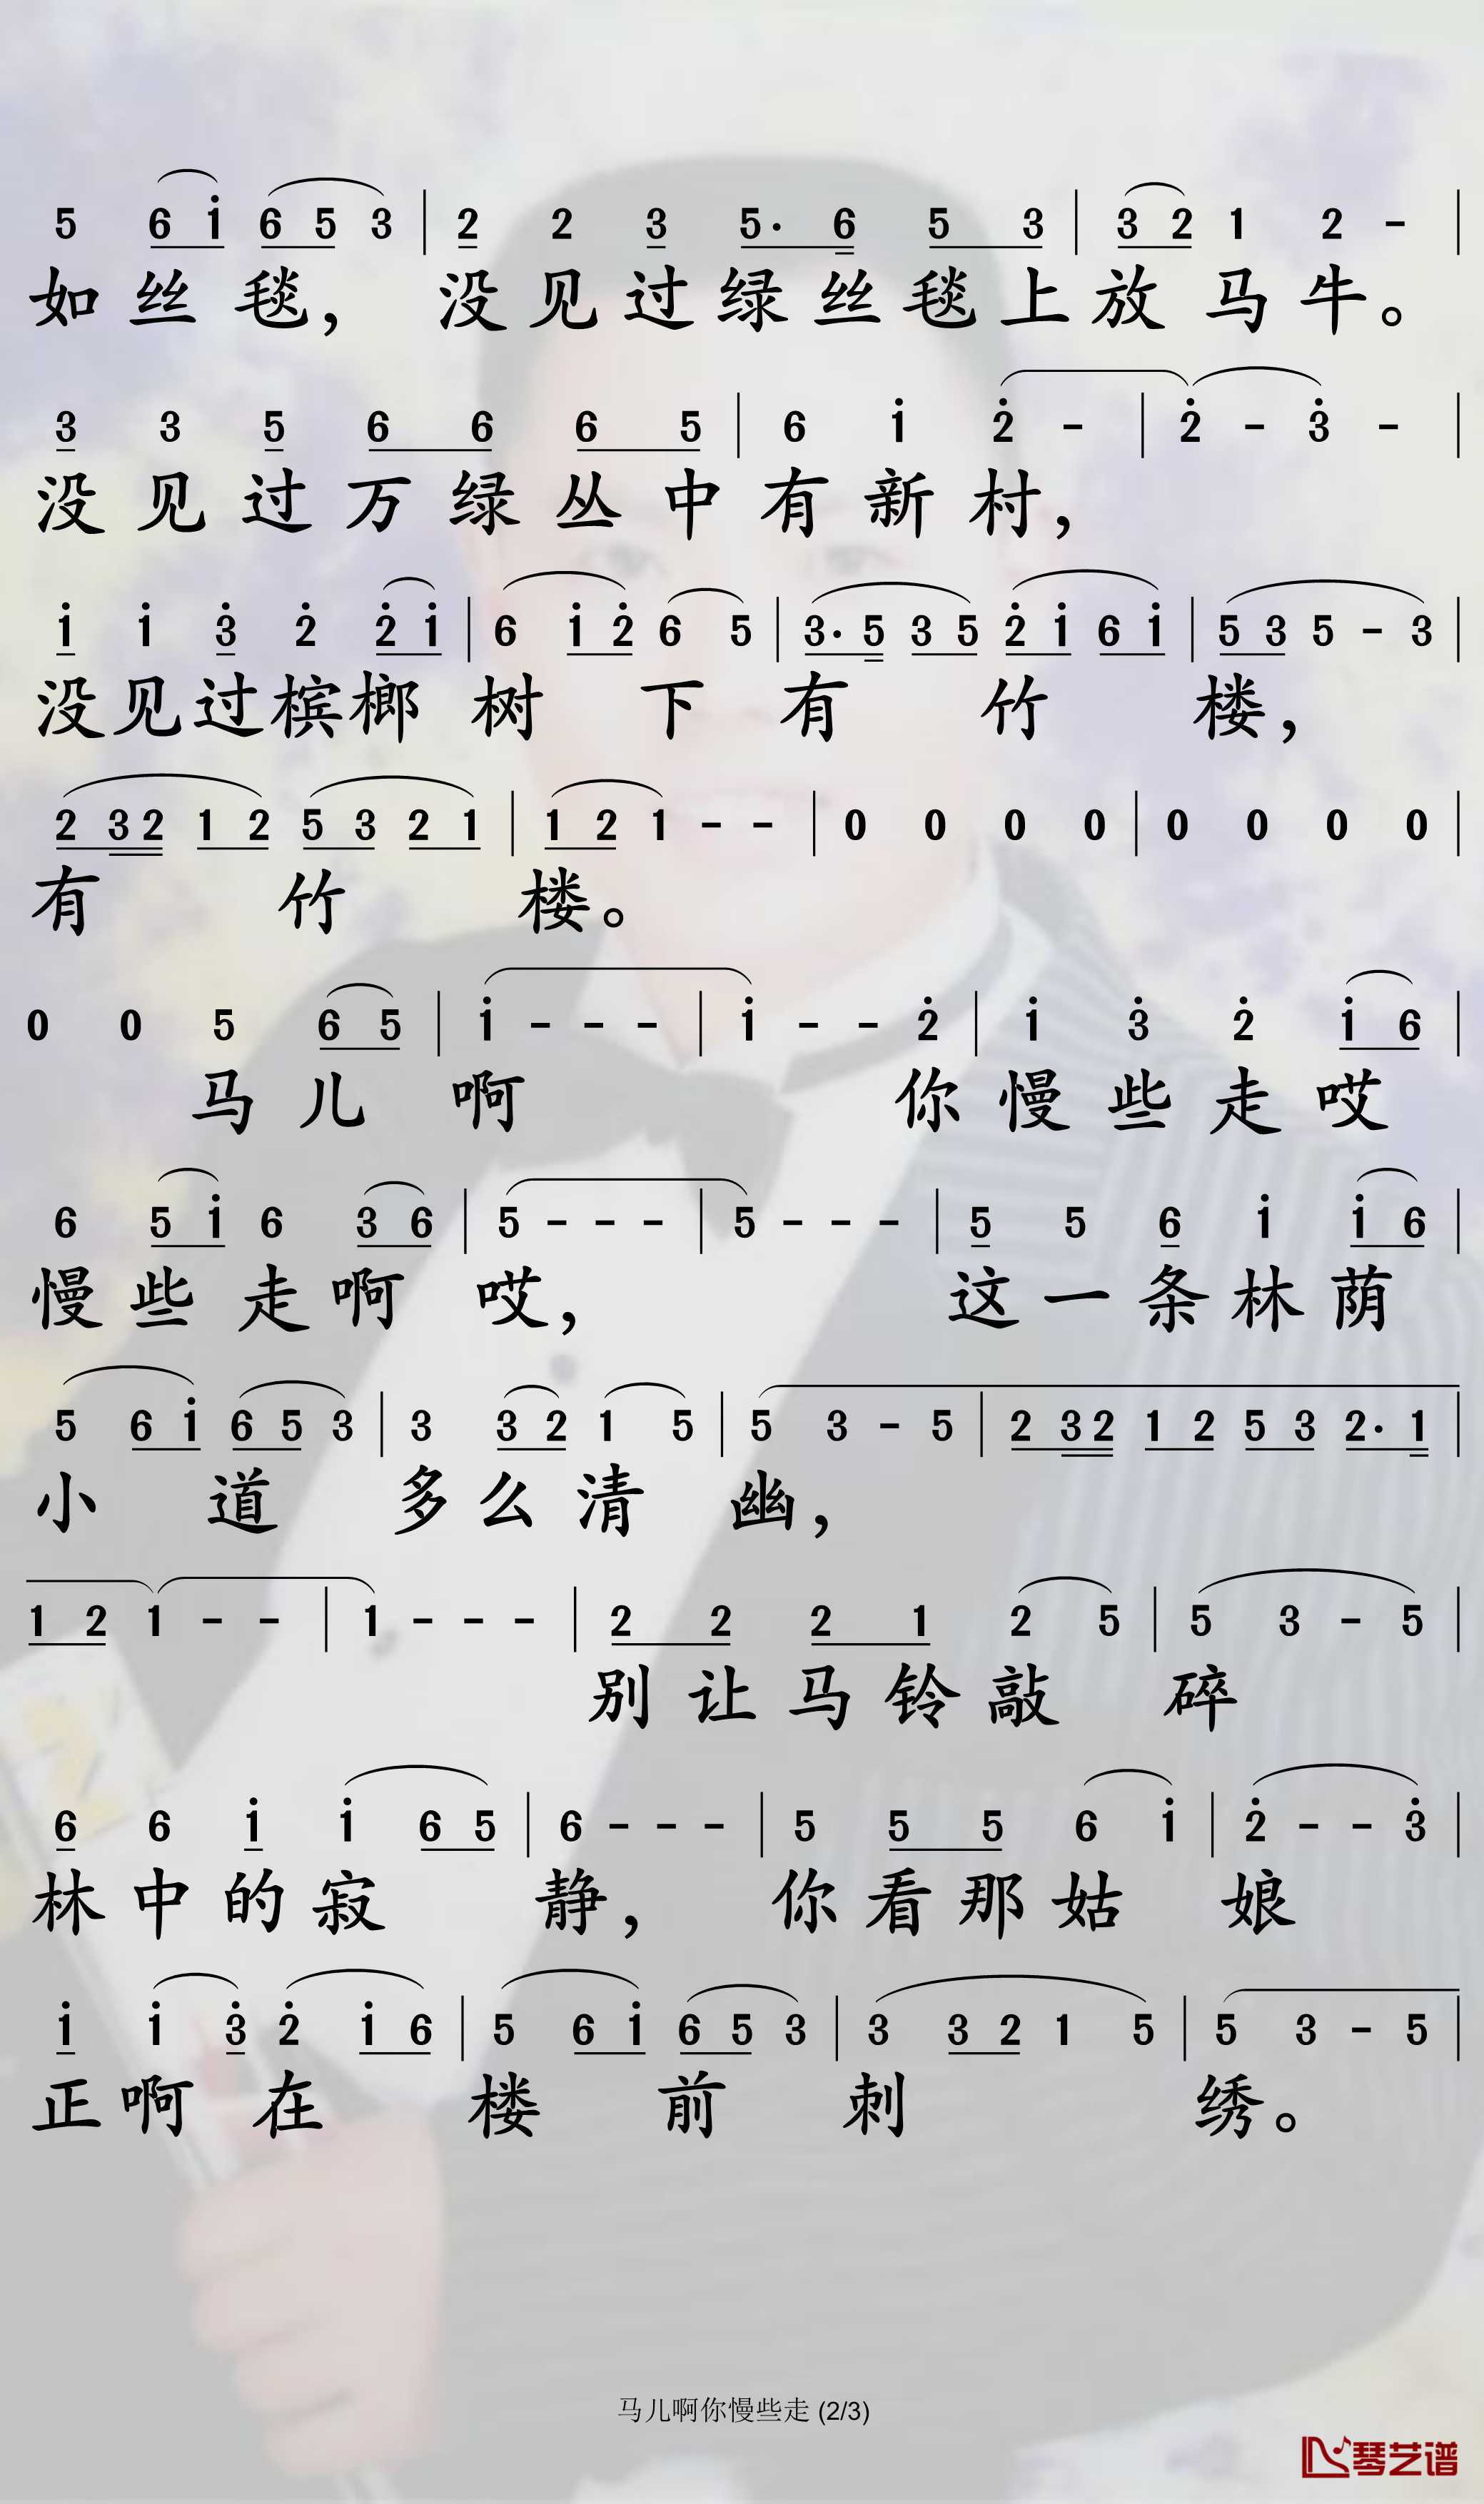 5 6 i 6 5 3 | 2 2 3 5· 6 5 3 | 3 2 1 2 - |
如丝毯，没见过绿丝毯上放马牛。
3 3 5 6 6 6 5 | 6 i 2̇ - | 2̇ - 3̇ - |
没见过万绿丛中有新村，
i i 3̇ 2̇ 2̇ i | 6 i 2̇ 6 5 | 3· 5 3 5 2̇ i 6 i | 5 3 5 - 3 |
没见过槟榔树下有竹楼，
2 3 2 1 2 5 3 2 1 | 1 2 1 - - | 0 0 0 0 | 0 0 0 0 |
有竹楼。
0 0 5 6 5 | i - - - | i - - 2̇ | i 3̇ 2̇ i 6 |
马儿啊你慢些走哎
6 5 i 6 3 6 | 5 - - - | 5 - - - | 5 5 6 i i 6 |
慢些走啊哎，这一条林荫
5 6 i 6 5 3 | 3 3 2 1 5 | 5 3 - 5 | 2 3 2 1 2 5 3 2· 1 |
小道多么清幽，
1 2 1 - - | 1 - - - | 2 2 2 1 2 5 | 5 3 - 5 |
别让马铃敲碎
6 6 i i 6 5 | 6 - - - | 5 5 5 6 i | 2̇ - - 3̇ |
林中的寂静，你看那姑娘
i i 3̇ 2̇ i 6 | 5 6 i 6 5 3 | 3 3 2 1 5 | 5 3 - 5 |
正啊在楼前刺绣。
马儿啊你慢些走 (2/3)
琴艺谱